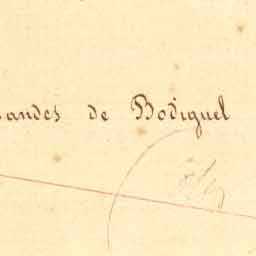 andes de Bodiguel